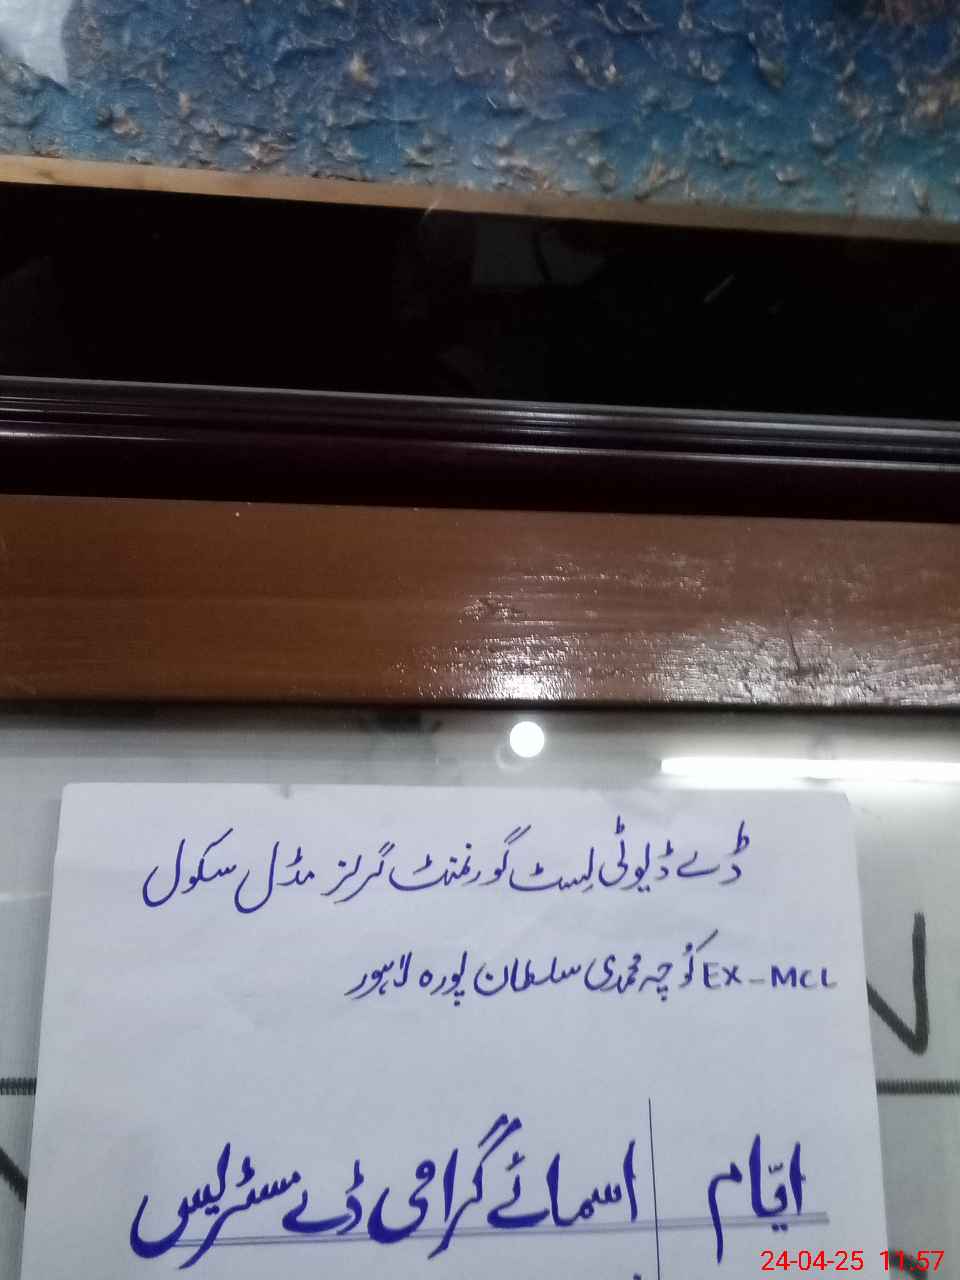 ڈے ڈیوٹی لسٹ گورنمنٹ گرلز مڈل سکول
EX-MCL کوُچہ محمدی سلطان پورہ لاہور
ایّام | اسمائے گرامی ڈے مسٹرلیس
24-04-25 11:57